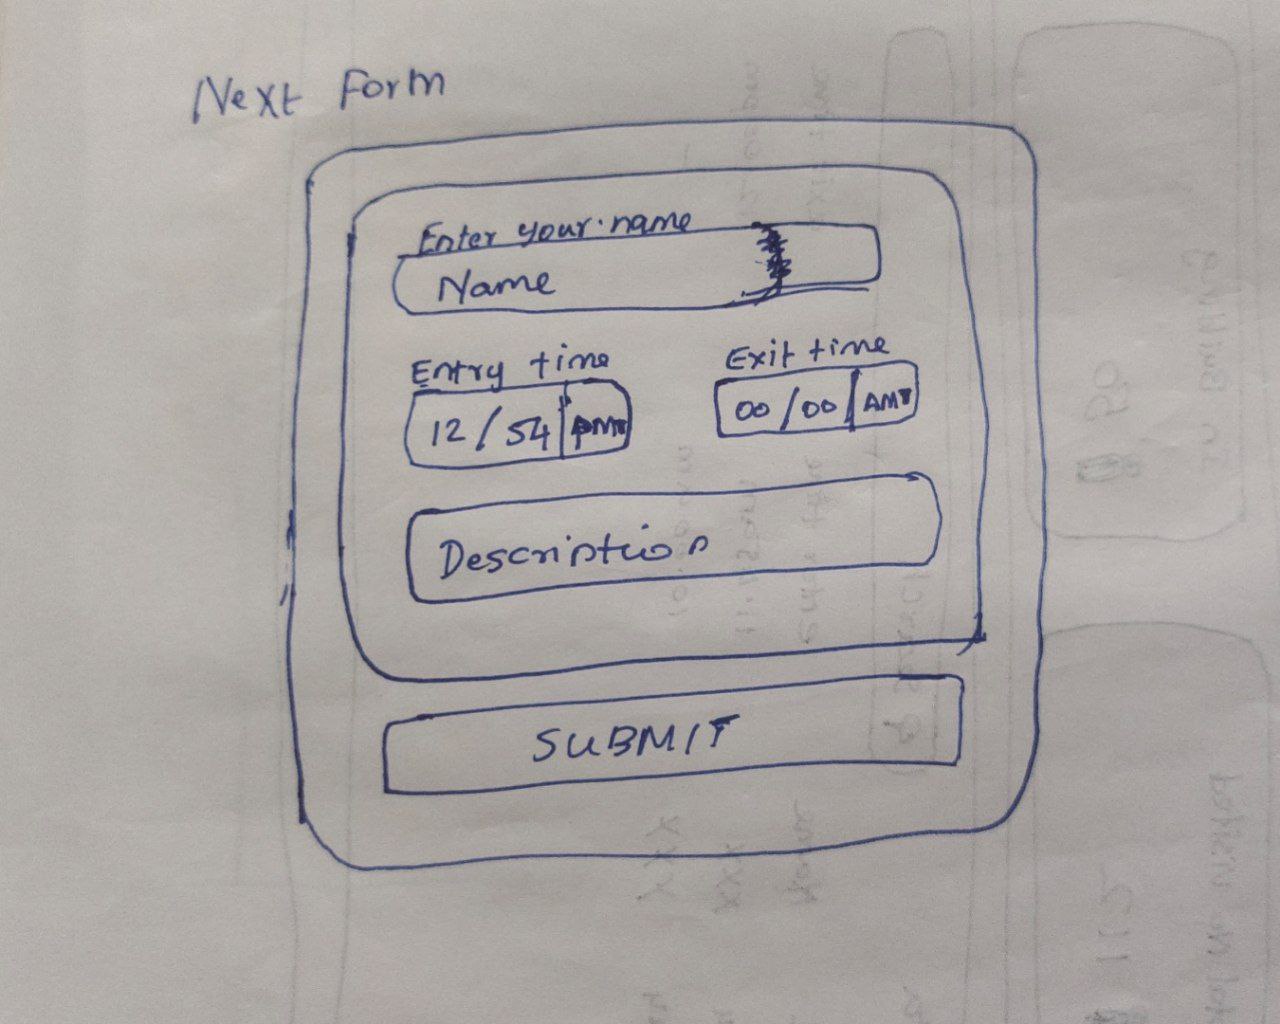 Next Form
Enter your name
Name
Entry time
Exit time
12/54 PM
00/00 AM
Description
SUBMIT